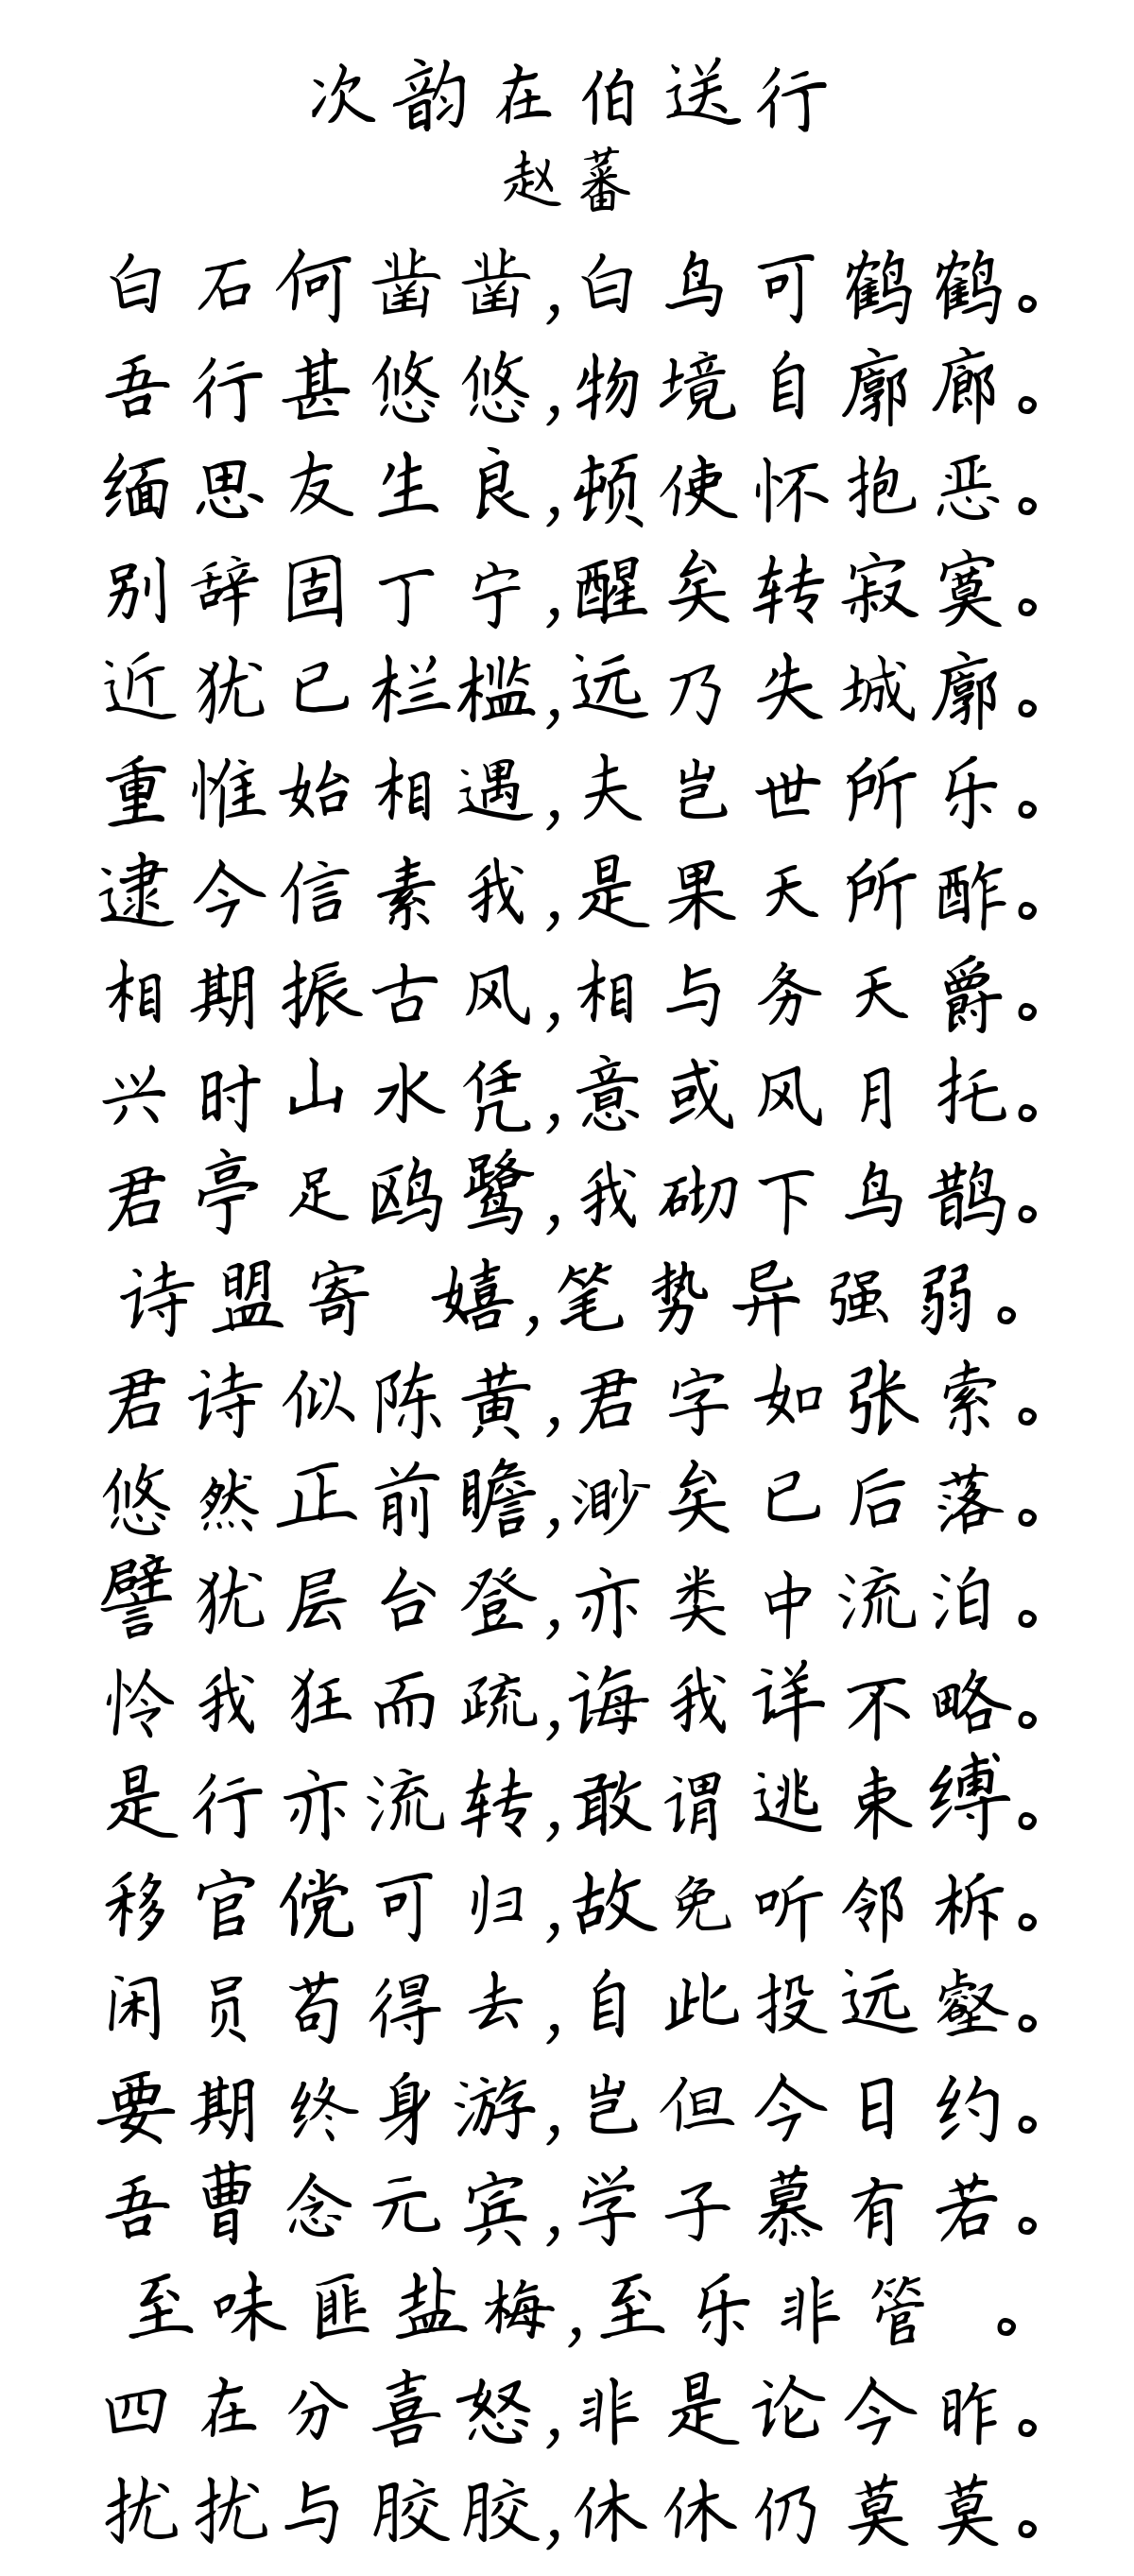 次韵在伯送行
赵蕃
白石何凿凿,白鸟可鹤鹤。
吾行甚悠悠,物境自廓廊。
缅思友生良,顿使怀抱恶。
别辞固丁宁,醒矣转寂寞。
近犹已栏槛,远乃失城廓。
重惟始相遇,夫岂世所乐。
逮今信素我,是果天所酢。
相期振古风,相与务天爵。
兴时山水凭,意或风月托。
君亭足鸥鹭,我砌下鸟鹊。
诗盟寄 嬉,笔势异强弱。
君诗似陈黄,君字如张索。
悠然正前瞻,渺矣已后落。
譬犹层台登,亦类中流泊。
怜我狂而疏,诲我详不略。
是行亦流转,敢谓逃束缚。
移官傥可归,故免听邻柝。
闲员苟得去,自此投远壑。
要期终身游,岂但今日约。
吾曹念元宾,学子慕有若。
至味匪盐梅,至乐非管 。
四在分喜怒,非是论今昨。
扰扰与胶胶,休休仍莫莫。